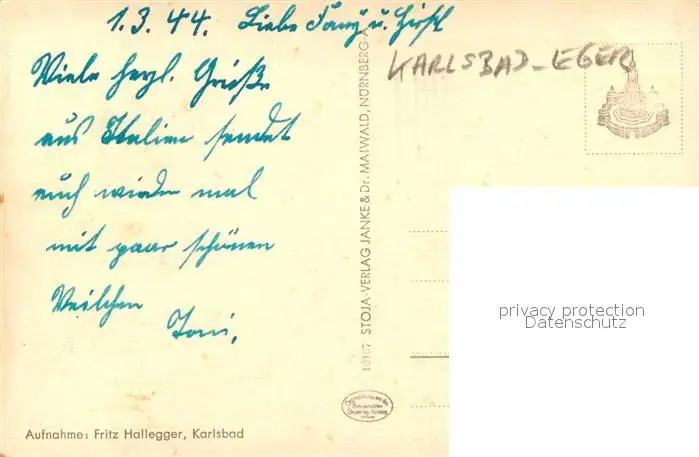 1.3.44. Liebe Fanny u.
Viele herzl. Grüße
aus Italien sendet
euch wieder mal
mit paar schönen
Veilchen
Toni.
KARLSBAD-EGER
10107 STOJA-VERLAG JANKE & Dr. MAIWALD, NÜRNBERG-A
privacy protection
Datenschutz
Aufnahme: Fritz Hallegger, Karlsbad